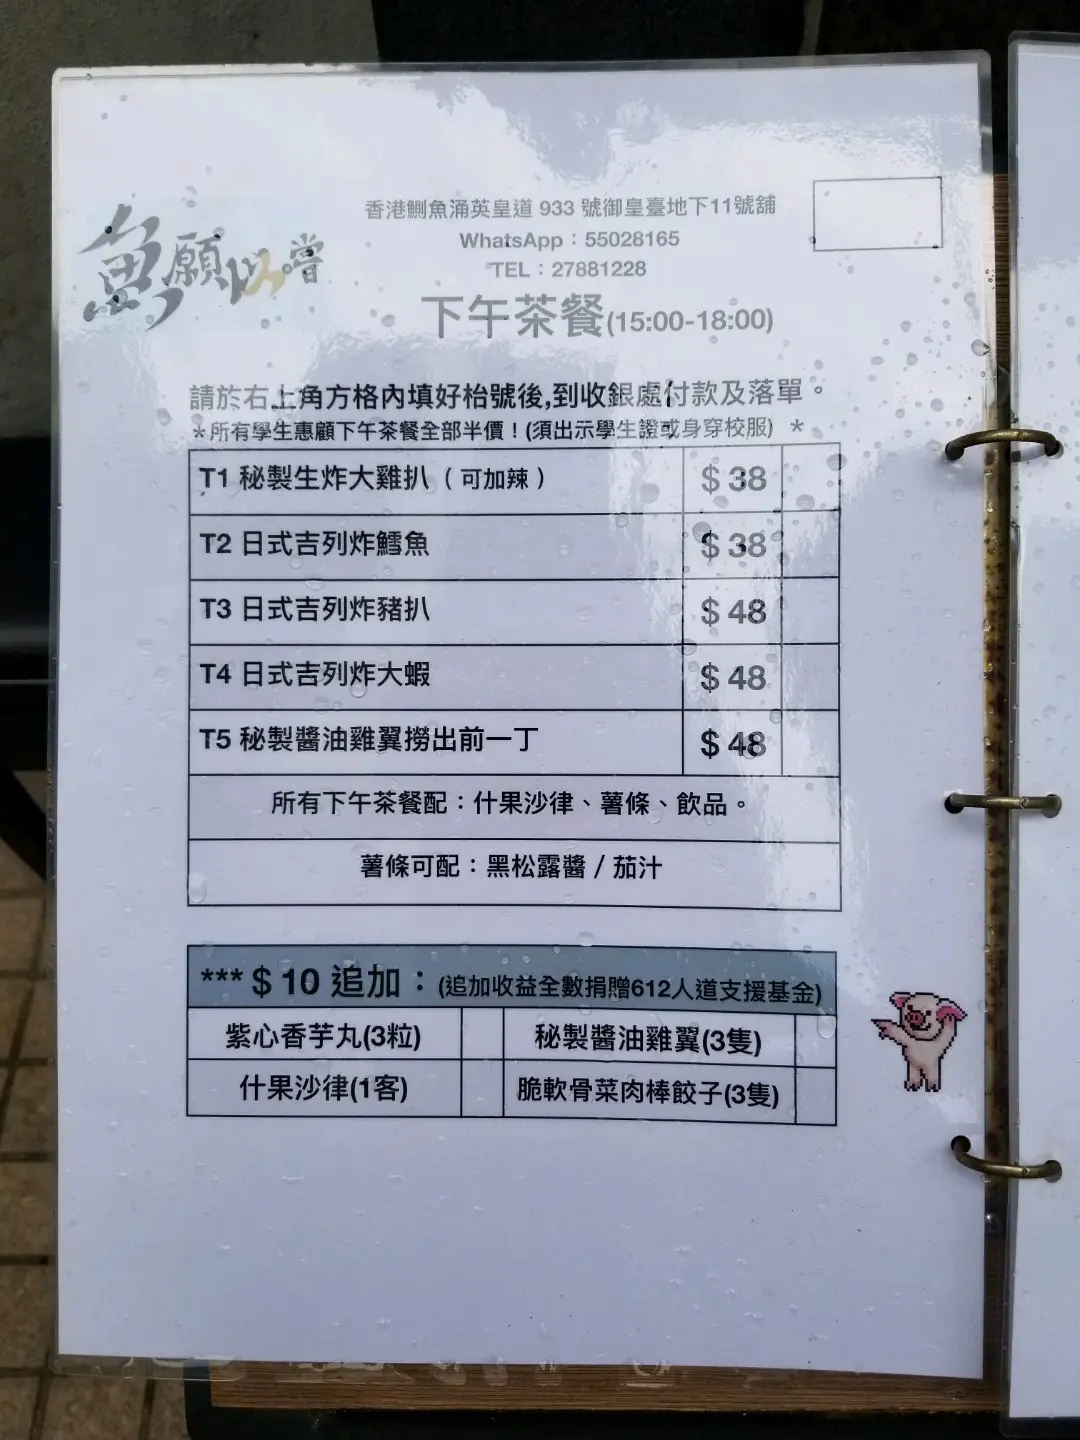 魚願似嚐
香港鰂魚涌英皇道 933 號御皇臺地下11號舖
WhatsApp：55028165
TEL：27881228
下午茶餐(15:00-18:00)
請於右上角方格內填好枱號後,到收銀處付款及落單。
*所有學生惠顧下午茶餐全部半價！(須出示學生證或身穿校服) *
T1 秘製生炸大雞扒（可加辣） $ 38
T2 日式吉列炸鱈魚 $ 38
T3 日式吉列炸豬扒 $ 48
T4 日式吉列炸大蝦 $ 48
T5 秘製醬油雞翼撈出前一丁 $ 48
所有下午茶餐配：什果沙律、薯條、飲品。
薯條可配：黑松露醬 / 茄汁
*** $ 10 追加：(追加收益全數捐贈612人道支援基金)
紫心香芋丸(3粒) 秘製醬油雞翼(3隻)
什果沙律(1客) 脆軟骨菜肉棒餃子(3隻)